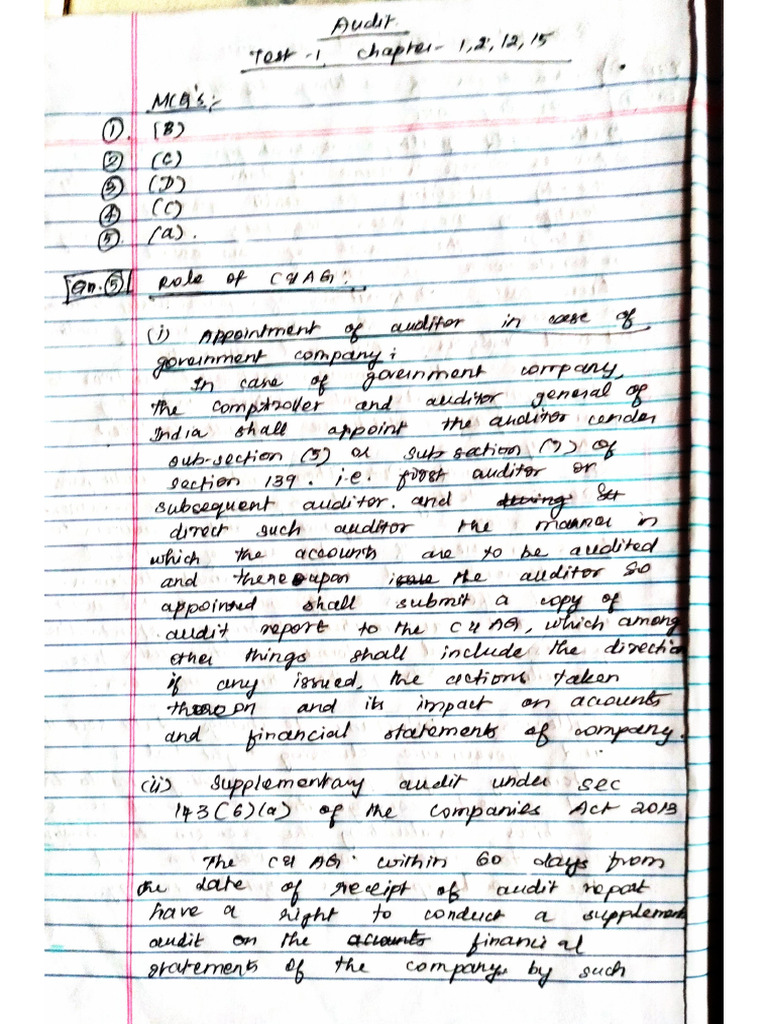 Audit
Test -1 Chapter- 1,2,12,15
MCQ's:-
①. [B)
② (C)
③ (D)
④ (C)
⑤. (a).
Qn. ⑤ Role of C&AG:
(i) Appointment of auditor in case of
government company:
In case of government company,
the comptroller and auditor general of
India shall appoint the auditor under
sub-section (5) or sub section (7) of
section 139. i.e. first auditor or
subsequent auditor. and
direct such auditor the manner in
which the accounts are to be audited
and thereupon the auditor so
appointed shall submit a copy of
audit report to the C&AG, which among
other things shall include the direction
if any issued, the actions taken
thereon and its impact on accounts
and financial statements of company.
(ii) Supplementary audit under sec
143(6)(a) of the Companies Act 2013
The C&AG. within 60 days from
the date of receipt of audit report
have a right to conduct a supplement
audit on the accounts financial
statements of the company by such